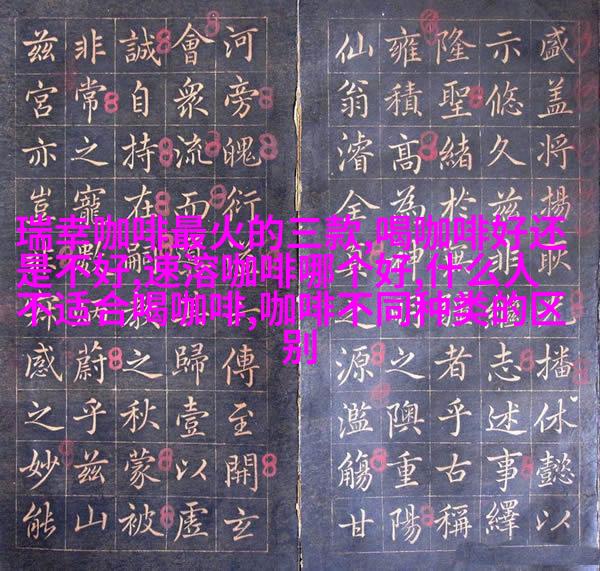 瑞幸咖啡最火的三款,喝咖啡好还
是不好,速溶咖啡哪个好,什么人
不适合喝咖啡,咖啡不同种类的区
别
盛盖将揚耿播休懿以
示悠久兹志述事繹
隆聖緒於者乎古稱
雍積高為之隩重陽
仙翁濬全源濫觴甘
河旁魄衍傳至開玄
會衆流而歸壹以虛
誠自持在嗣之秋蒙被
非常之寵蔚乎兹山
兹宮亦豈感之妙能